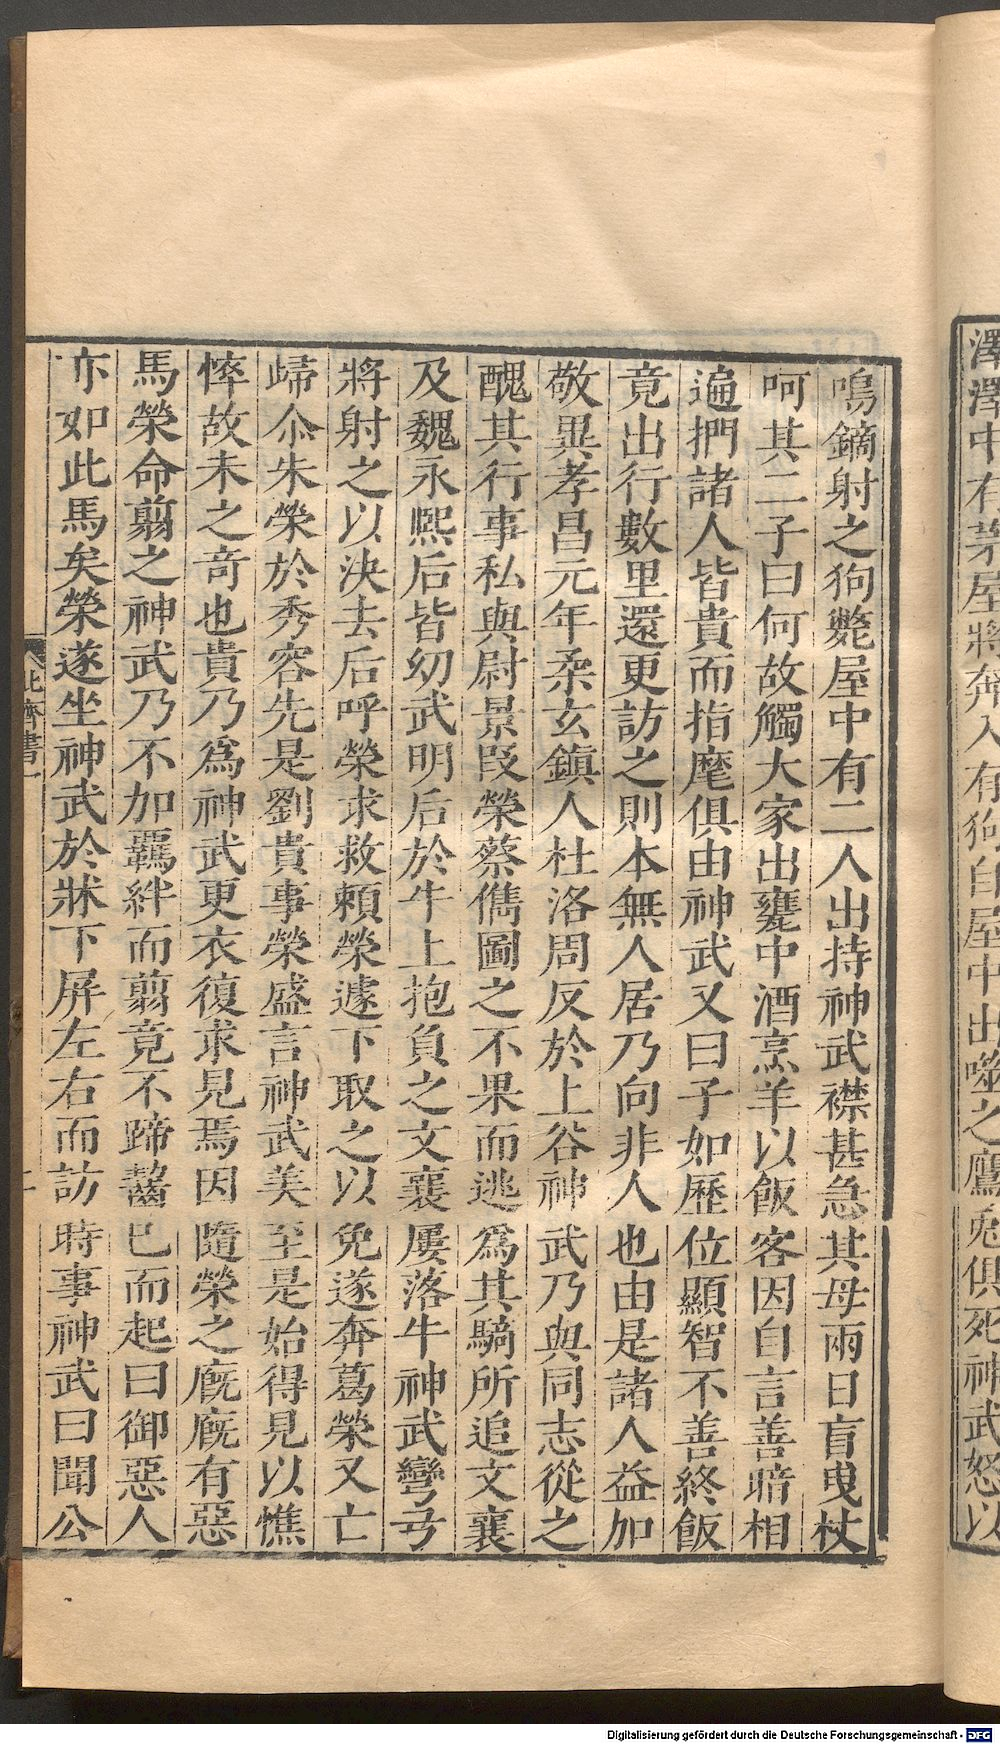 澤澤中有茅屋將奔入有狗自屋中出噬之鷹兎俱死神武怒以
鳴鏑射之狗斃屋中有二人出持神武襟甚急其母兩目盲曳杖
呵其二子曰何故觸大家出甕中酒烹羊以飯客因自言善暗相
遍捫諸人皆貴而指麾俱由神武又曰子如歷位顯智不善終飯
竟出行數里還更訪之則本無人居乃向非人也由是諸人益加
敬異孝昌元年柔玄鎮人杜洛周反於上谷神武乃與同志從之
醜其行事私與尉景叚榮蔡儁圖之不果而逃爲其騎所追文襄
及魏永熙后皆幼武明后於牛上抱負之文襄屢落牛神武彎弓
將射之以決去后呼榮求救賴榮遽下取之以免遂奔葛榮又亡
歸尒朱榮於秀容先是劉貴事榮盛言神武美至是始得見以憔
悴故未之奇也貴乃爲神武更衣復求見焉因隨榮之廐廐有惡
馬榮命翦之神武乃不加羈絆而翦竟不蹄齧已而起曰御惡人
亦如此馬矣榮遂坐神武於牀下屏左右而訪時事神武曰聞公
北齊書一
二
Digitalisierung gefördert durch die Deutsche Forschungsgemeinschaft - DFG